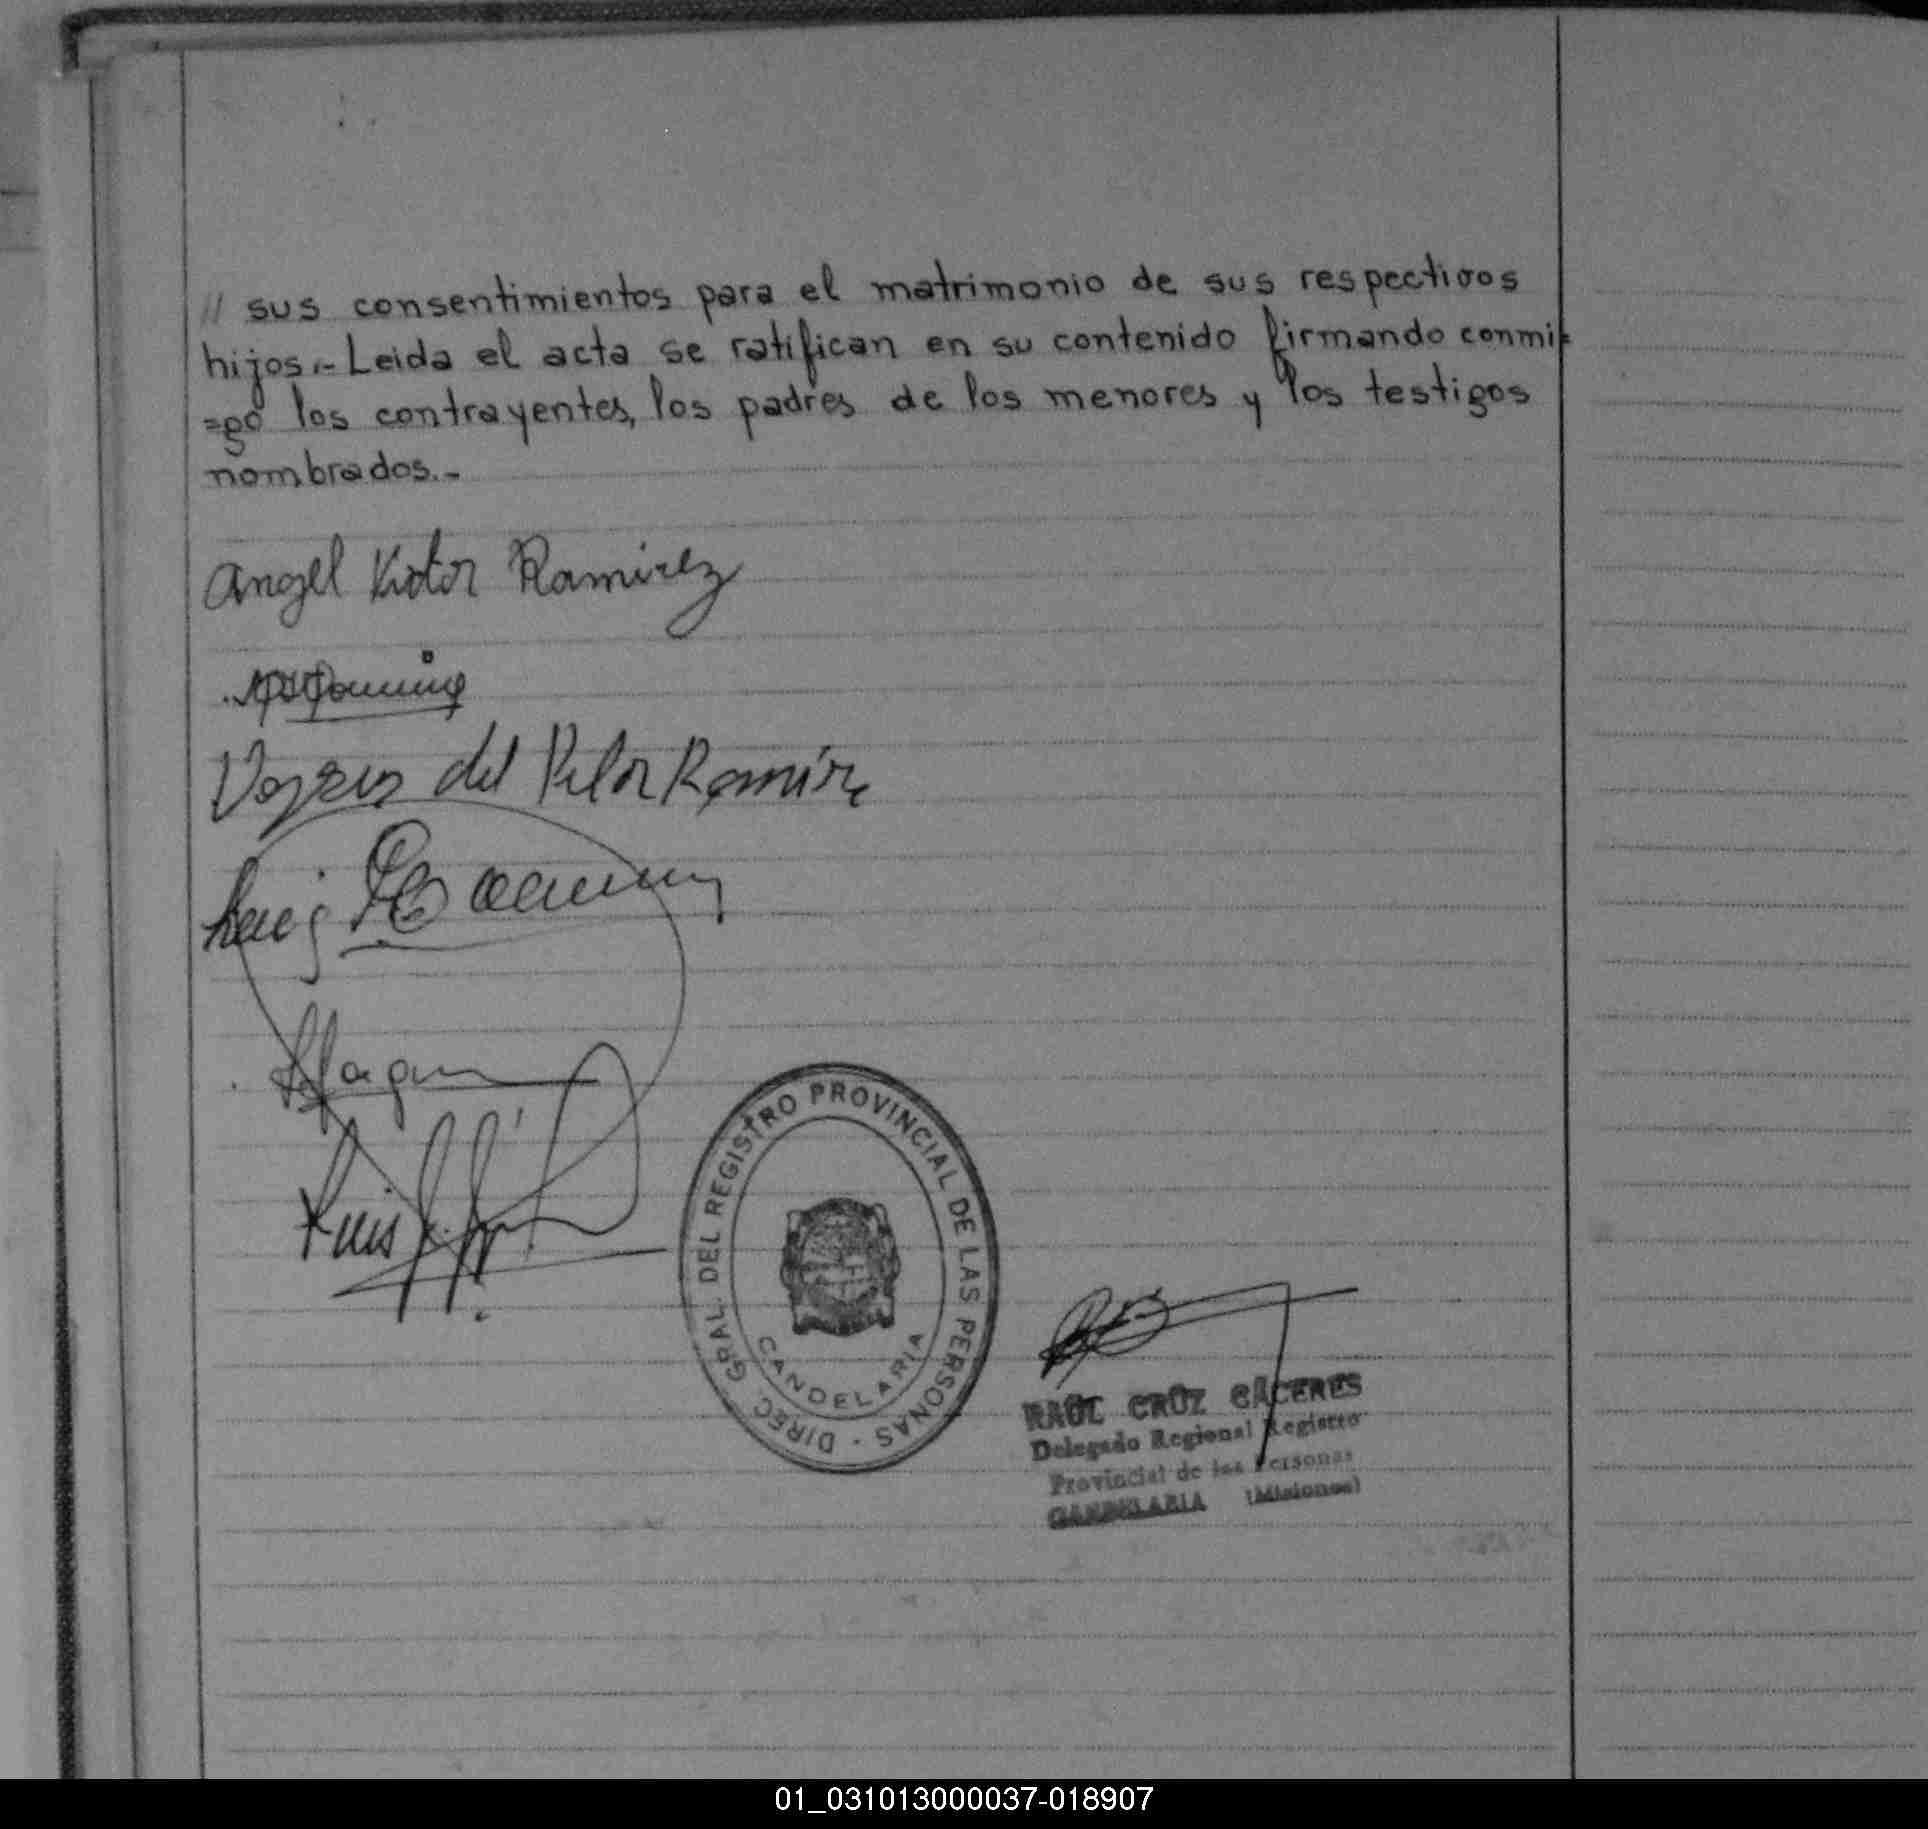 // sus consentimientos para el matrimonio de sus respectivos
hijos.- Leida el acta se ratifican en su contenido firmando conmi=
=go los contrayentes, los padres de los menores y los testigos
nombrados.-
Angel Victor Ramirez
del Pilar Ramire
Luis
DIREC. GRAL. DEL REGISTRO PROVINCIAL DE LAS PERSONAS -
CANDELARIA
RAÚL CRUZ CÁCERES
Delegado Regional Registro
Provincial de las Personas
CANDELARIA (Misiones)
01_031013000037-018907